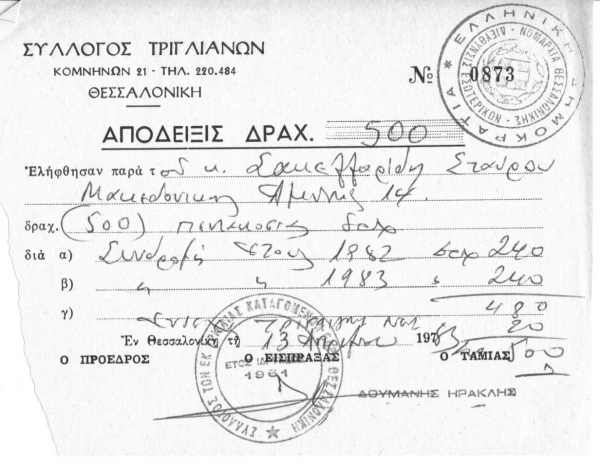 ΣΥΛΛΟΓΟΣ ΤΡΙΓΛΙΑΝΩΝ
ΚΟΜΝΗΝΩΝ 21 - ΤΗΛ. 220.484
ΘΕΣΣΑΛΟΝΙΚΗ
ΕΛΛΗΝΙΚΗ ΔΗΜΟΚΡΑΤΙΑ
ΝΟΜΑΡΧΙΑ ΘΕΣΣΑΛΟΝΙΚΗΣ
ΔΙΕΥΘΥΝΣΙΣ ΕΣΩΤΕΡΙΚΩΝ
№ 0873
ΑΠΟΔΕΙΞΙΣ ΔΡΑΧ. 500
Ἐλήφθησαν παρὰ τοῦ κ. Σακελλαρίδη Σταύρου
Μακεδονικης Αμυνης 14
δραχ. (500) πεντακοσιες δρχ
διὰ α) Συνδρομή έτους 1982 δρχ 240
β) " " 1983 " 240
γ) 480
20
Ἐν Θεσσαλονίκῃ τῇ 13 1983
500
Ο ΠΡΟΕΔΡΟΣ Ο ΕΙΣΠΡΑΞΑΣ Ο ΤΑΜΙΑΣ
ΣΥΛΛΟΓΟΣ ΤΩΝ ΕΚ ΚΑΤΑΓΟΜΕΝΩΝ ΘΕΣΣΑΛΟΝΙΚΗ
ΕΤΟΣ
1961
ΔΟΥΜΑΝΗΣ ΗΡΑΚΛΗΣ